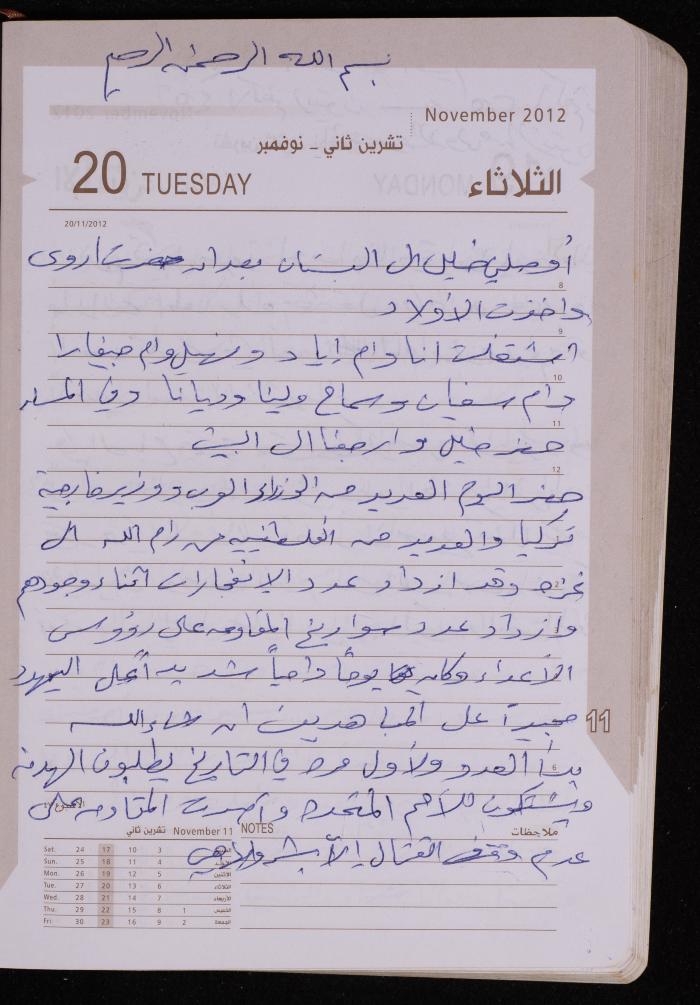 بسم الله الرحمن الرحيم
November 2012
تشرين ثاني - نوفمبر
20 TUESDAY الثلاثاء
20/11/2012
أوصلني خليل الى البستان بعدان حضرت اروى
8
واخذت الأولاد
9
اشتغلت انا وام إياد و وام
10
وام سفيان وسماح ولينا وديانا وفي المساء
11
حضر خليل وارجعنا الى البيت
12
حضر اليوم العديد من الوزراء العرب ووزير خارجية
تركيا والعديد من الفلسطينيين من رام الله الى
غزه وقد ازداد عدد الإنفجارات أثناء وجودهم
وازداد عدد صواريخ المقاومه على رؤوس
الأعداء وكان يوماً دامياً شديداً على اليهود
مجيداً على المجاهدين ان شاء الله
11
بدأ العدو ولأول مره في التاريخ يطلبون الهدنه
6
ويشتكون للأمم المتحده وأصرت المقاومه على
عدم وقف القتال إلا بشروطهم
تشرين ثاني November 11 NOTES ملاحظات
Sat. 24 17 10 3
Sun. 25 18 11 4 الأحد
Mon. 26 19 12 5 الاثنين
Tue. 27 20 13 6 الثلاثاء
Wed. 28 21 14 7 الأربعاء
Thu. 29 22 15 8 1 الخميس
Fri. 30 23 16 9 2 الجمعة